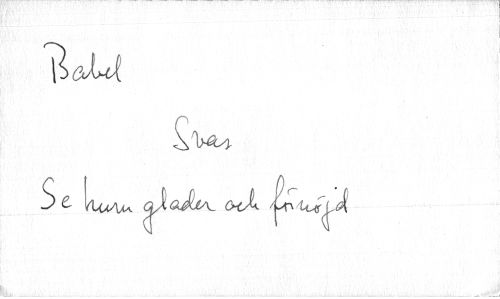 Babel
Svar
Se huru glader och förnöjd